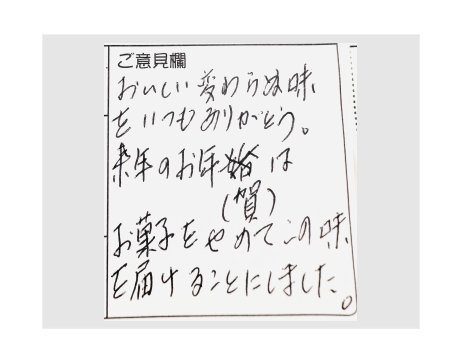 ご意見欄
おいしい変わらぬ味
をいつもありがとう。
来年のお年始は
(賀)
お菓子をやめてこの味
を届けることにしました。